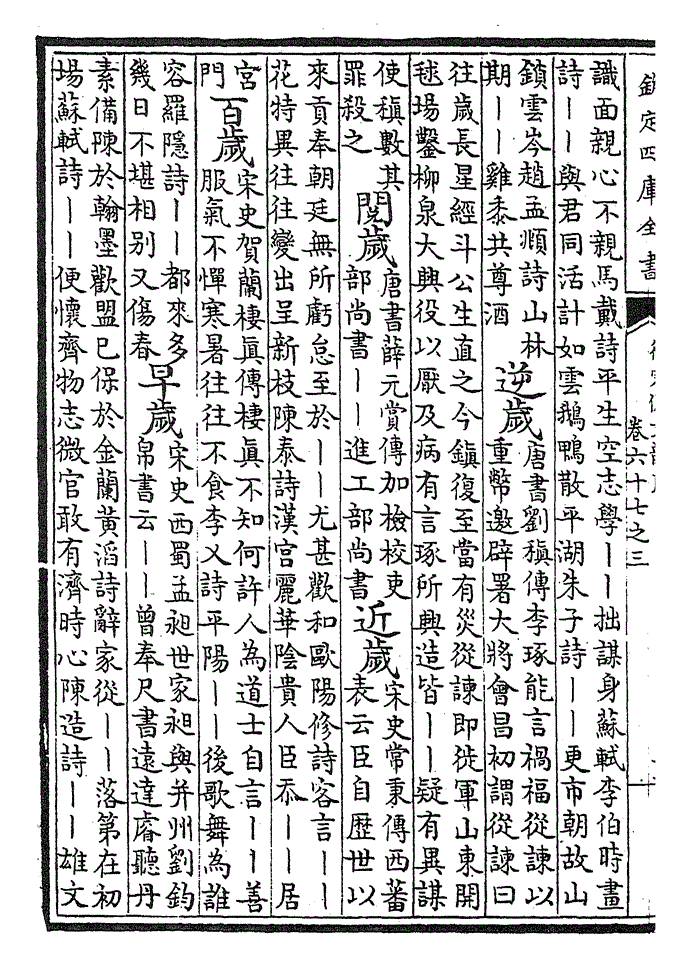 欽定四庫全書
卷六十七之三
識面親心不親馬戴詩平生空志學——拙謀身蘇軾李伯時畫
詩——與君同活計如雲鵝鴨散平湖朱子詩——更市朝故山
鎖雲岑趙孟頫詩山林
期——雞黍共尊酒
逆歲
唐書劉稹傳李琢能言禍福從諫以
重幣邀辟署大將會昌初謂從諫曰
往歲長星經斗公生直之今鎮復至當有災從諫即徙軍山東開
毬場鑿柳泉大興役以厭及病有言琢所興造皆——疑有異謀
使稹數其
罪殺之
閱歲
唐書薛元賞傳加檢校吏
部尚書——進工部尚書
近歲
宋史常秉傳西蕃
表云臣自歷世以
來貢奉朝廷無所虧怠至於——尤甚歡和歐陽修詩客言——
花特異往往變出呈新枝陳泰詩漢宮麗華陰貴人臣忝——居
宮
門
百歲
宋史賀蘭棲眞傳棲眞不知何許人為道士自言——善
服氣不憚寒暑往往不食李乂詩平陽——後歌舞為誰
容羅隱詩——都來多
幾日不堪相別又傷春
早歲
宋史西蜀孟昶世家昶與并州劉鈞
帛書云——曾奉尺書遠達睿聽丹
素備陳於翰墨歡盟已保於金蘭黃滔詩辭家從——落第在初
場蘇軾詩——便懷齊物志微官敢有濟時心陳造詩——雄文